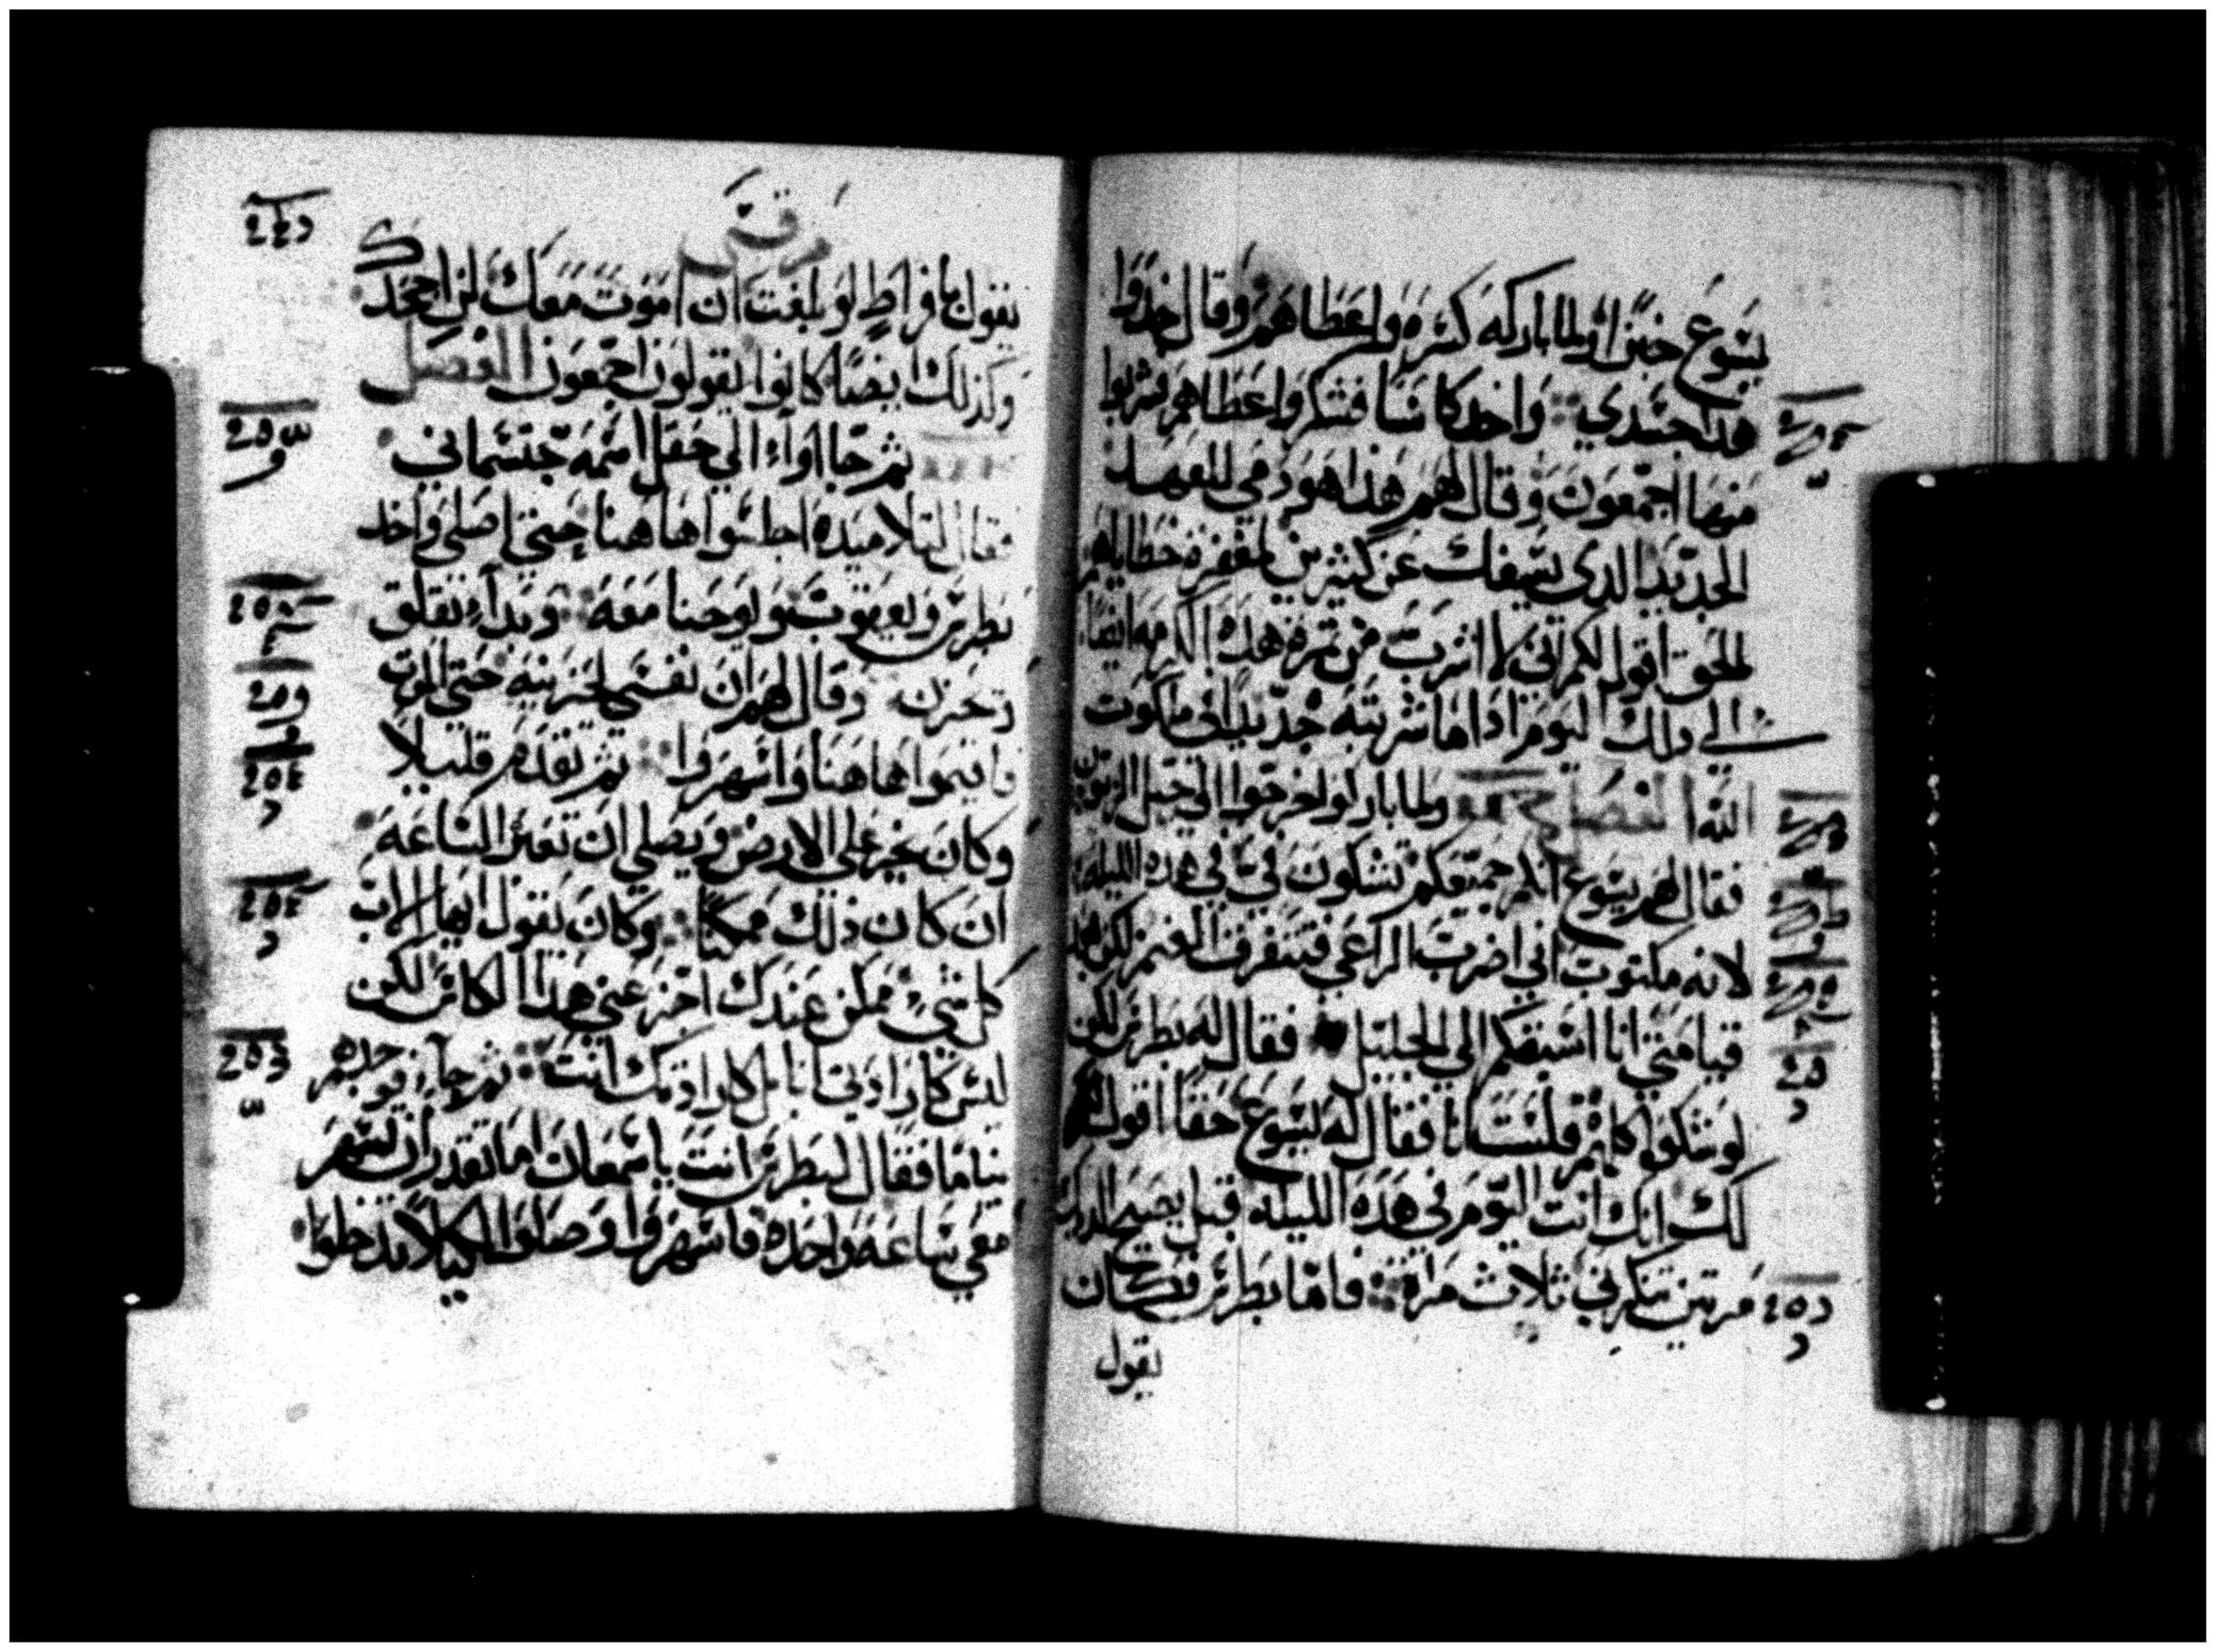 يسوع خبزا ولما باركه كسره واعطاهم وقال خدوا
هدا جسدي واخد كاسا فشكر واعطاهم فشربوا
منها اجمعون وقال لهم هذا هو دمي للعهد
الجديد الدي يسفك عن كثيرين لمغفرة خطاياهم
الحق اقول لكم انى لا اشرب من تمرة هذه الكرمه ايضا
الي دلك اليوم ادا ما شربته جديدا في ملكوت
الله الفصل ولما باركوا خرجوا الي جبل الزيتون
فقال لهم يسوع انكم جميعكم تشكون في في هده الليله
لانه مكتوب اني اضرب الراعي فتتفرق الغنم لكن بعد
قيامتي انا اسبقكم الي الجليل فقال له بطرس لكن
لو شكوا كلهم فلست انا فقال له يسوع حقا اقول
لك انك انت اليوم في هده الليله قبل يصيح الديك
مرتين تنكرني ثلاث مرة فاما بطرس فكان
يقول
مرقس
يقول بافراط لو بلغت ان اموت معك لن اجحدك
وكذلك ايضا كانوا يقولون اجمعون الفصل
ثم جااوا الي حقل اسمه جتسماني
فقال لتلاميده اجلسوا هاهنا حتي اصلي واخد
بطرس ويعقوب ويوحنا معه وبدا يقلق
وحزن وقال لهم ان نفسي لحزينه حتي الموت
فاقيموا هاهنا واسهروا ثم تقدم قليلا
وكان يخر علي الارض ويصلي ان تعبر الساعه
ان كان ذلك ممكنا وكان يقول ايها الاب
كل شي ممكن عندك اجز عني هدا الكاس لكن
ليس كارادتي انا بل كارادتك انت ثم جا فوجدهم
نياما فقال لبطرس انت يا سمعان اما تقدر ان تسهر
معي ساعه واحده فاسهروا وصلوا لكيلا تدخلوا